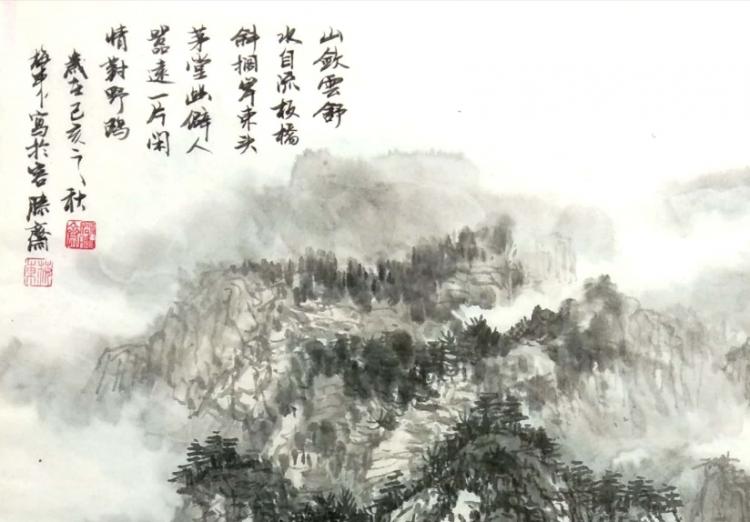 山歛雲舒
水自流板橋
斜搁岸東头
茅堂幽僻人
嚣遠一片闲
情對野鸥
歲在己亥之秋
寫於容膝齋